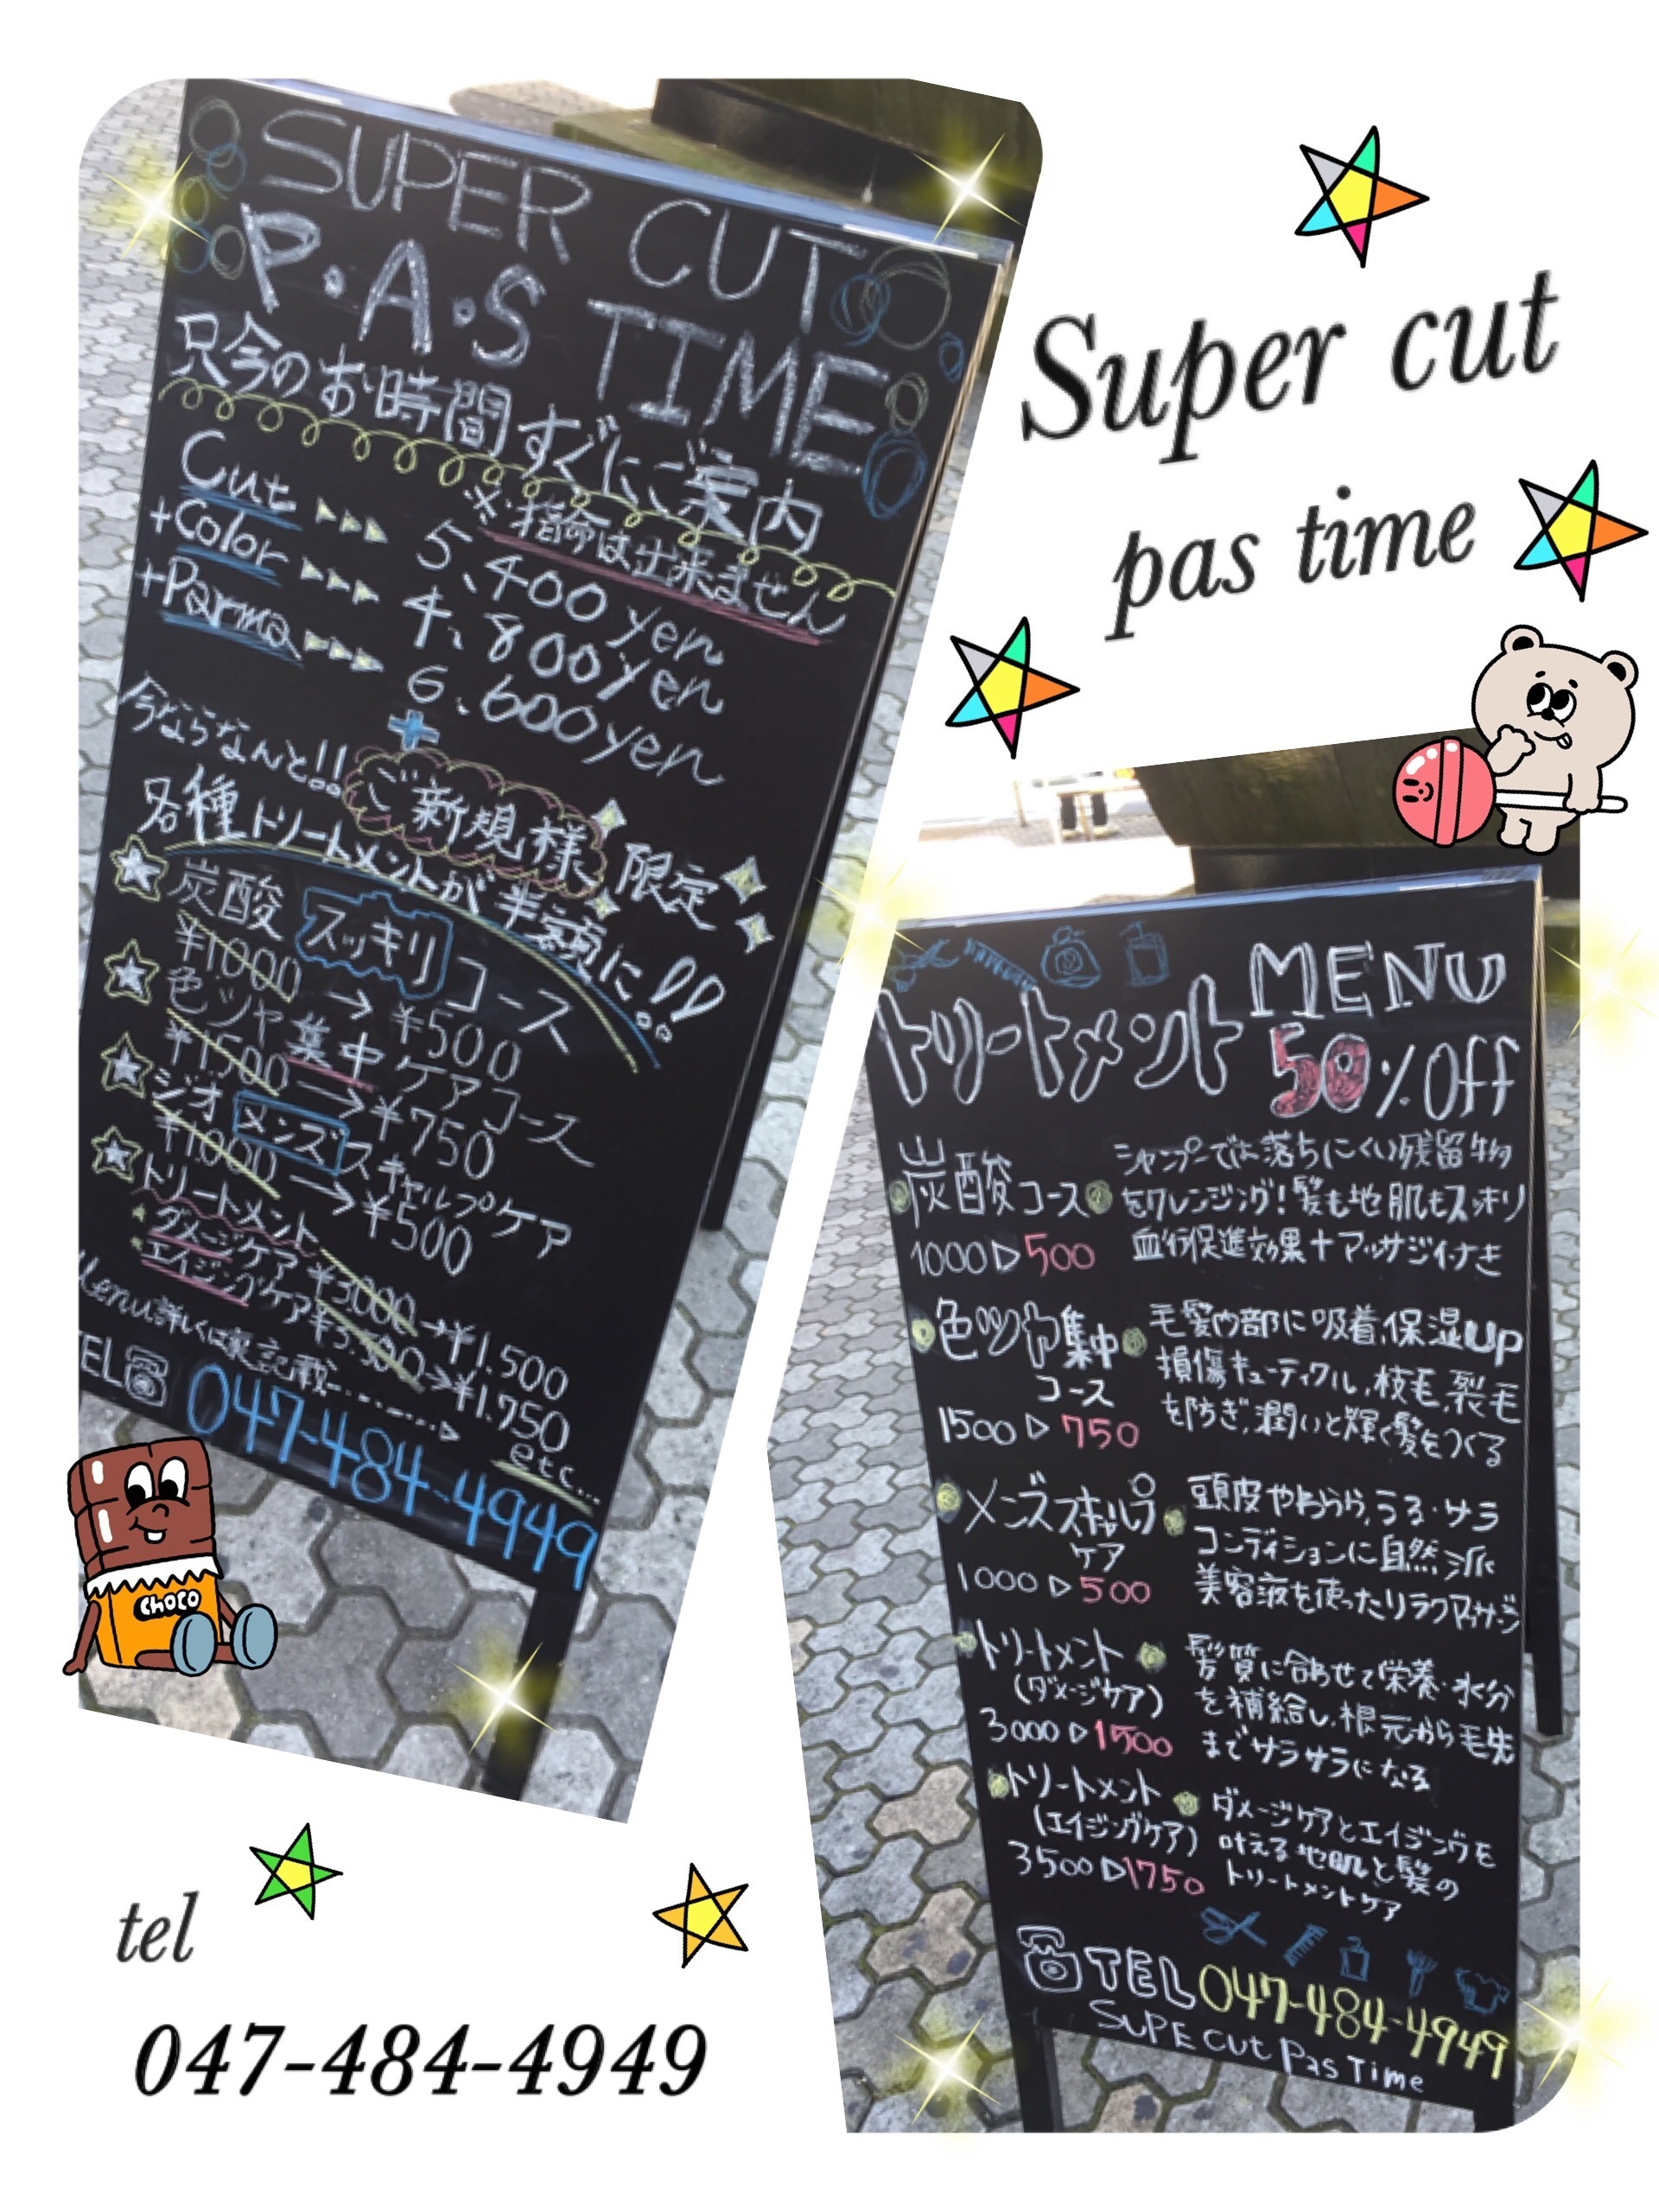 SUPER CUT
P・A・S TIME
只今のお時間すぐにご案内
※指命は出来ません
Cut ▷▷▷ 5,400 yen
+Color ▷▷▷ 4,800 yen
+Parma ▷▷▷ 6,600 yen
+
今ならなんと!! ご新規様 限定
各種トリートメントが半額に!!
☆炭酸スッキリコース
¥1000 → ¥500
☆色ツヤ集中ケアコース
¥1,500 → ¥750
☆ジオメンズスキャルプケア
¥1,000 → ¥500
☆トリートメント
・ダメージケア ¥3,000 → ¥1,500
・エイジングケア ¥3,500 → ¥1,750
Menu詳しくは裏記載------▷ etc...
TEL☎ 047-484-4949
Super cut
pas time
トリートメント MENU
50%Off
炭酸コース
1000▷500
シャンプーでは落ちにくい残留物
をクレンジング!髪も地肌もスッキリ
血行促進効果+マッサジイナき
色ツヤ集中
コース
1500▷750
毛髪内部に吸着,保湿UP
損傷キューティクル,枝毛,裂毛
を防ぎ,潤いと輝く髪をつくる
メンズスキャルプ
ケア
1000▷500
頭皮やわらら,うる・サラ
コンディションに自然派
美容液を使ったリラクマッサージ
トリートメント
(ダメージケア)
3000▷1500
髪質に合わせて栄養・水分
を補給し,根元から毛先
までサラサラになる
トリートメント
(エイジングケア)
3500▷1750
ダメージケアとエイジングを
叶える地肌と髪の
トリートメントケア
☎TEL 047-484-4949
SUPE Cut Pas Time
CHOCO
tel
047-484-4949